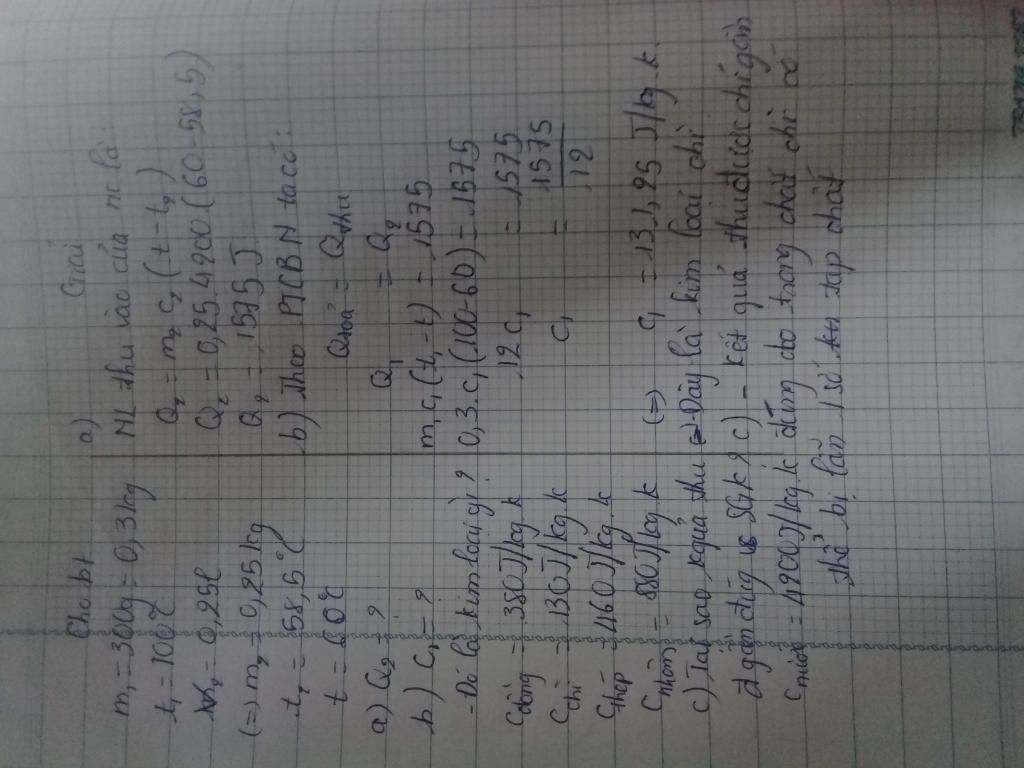 Cho bt
m₁ = 300g = 0,3kg
t₁ = 100°C
V₂ = 0,25l
(=) m₂ = 0,25kg
t₂ = 58,5°C
t = 60°C
a) Q₂ = ?
b) C₁ = ?
- Đó là kim loại gì?
Cđồng = 380J/kg.k
Cchì = 130J/kg.k
Cthép = 460J/kg.k
Cnhôm = 880J/kg.k
c) Tại sao kquả thu
đ gần đúg SGK?
Cnước = 4200J/kg.k
Giải
a) NL thu vào của nc là:
Q₂ = m₂ c₂ (t - t₂)
Q₂ = 0,25.4200(60-58,5)
Q₂ = 1575J
b) Theo PTCBN ta có:
Qtoả = Qthu
Q₁ = Q₂
m₁c₁(t₁-t) = 1575
0,3.c₁(100-60) = 1575
12c₁ = 1575
c₁ = 1575/12
(=) c₁ = 131,25 J/kg.k
Đây là kim loại chì
c) - kết quả thu được chỉ gần
đúng do trong chất chì có
thể bị lẫn 1 số tạp chất